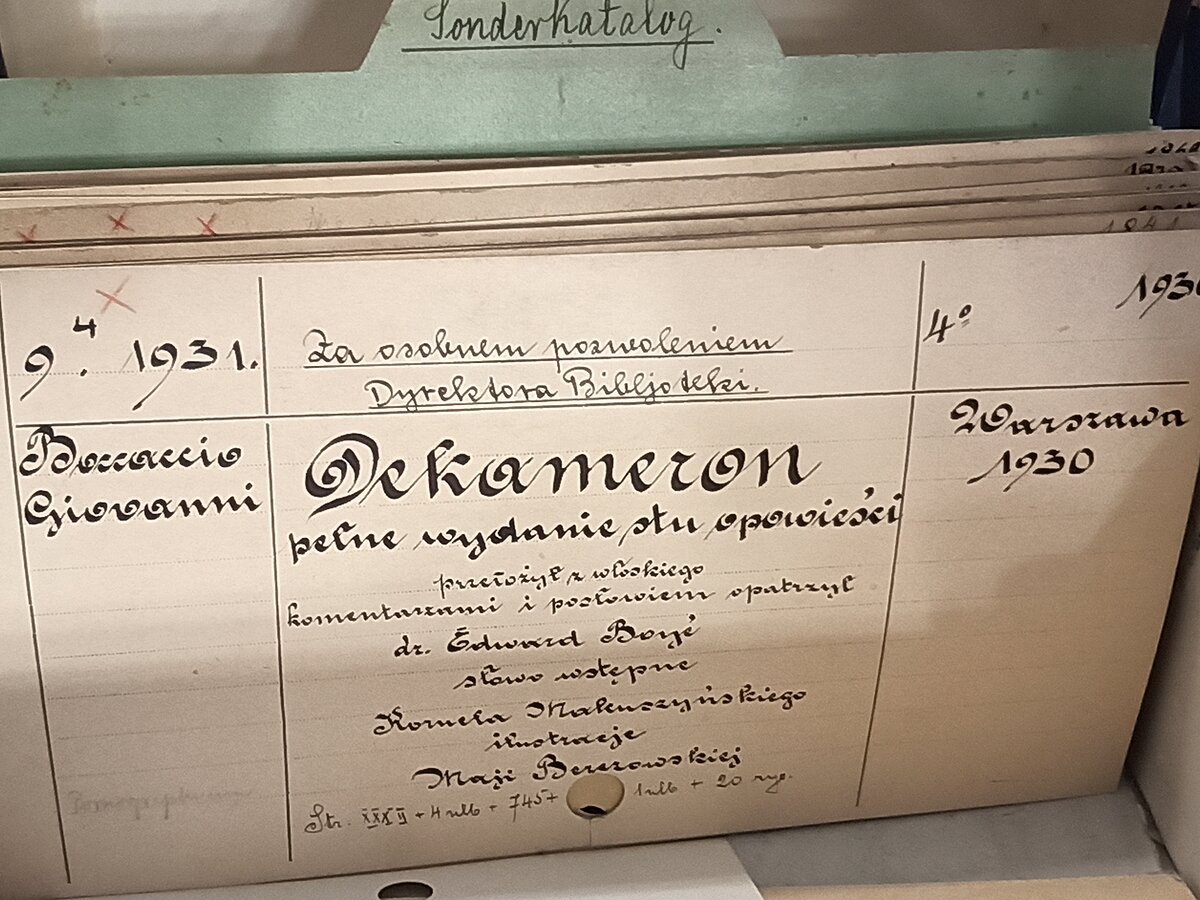 Sonderkatalog.
1841
1930
9. 4 1931.
Za osobnem pozwoleniem
Dyrektora Bibljoteki.
4º
Boccaccio
Giovanni
Dekameron
pełne wydanie stu opowieści
przełożył z włoskiego
komentarzami i posłowiem opatrzył
dr. Edward Boyé
słowo wstępne
Kornela Makuszyńskiego
ilustracje
Maji Berezowskiej
Str. XXXII + 4 nlb + 745 + 1 nlb + 20 ryc.
Warszawa
1930